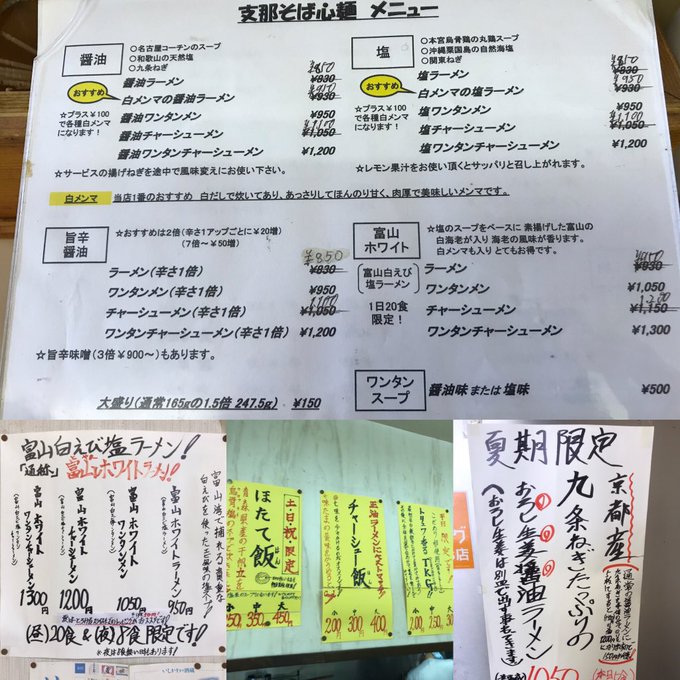 支那そば心麺 メニュー
醤油
○名古屋コーチンのスープ
○和歌山の天然塩
○九条ねぎ
¥850
醤油ラーメン ¥830
おすすめ
白メンマの醤油ラーメン ¥930
☆プラス¥100
で各種白メンマ
になります！
醤油ワンタンメン ¥950
¥1,100
醤油チャーシューメン ¥1,050
醤油ワンタンチャーシューメン ¥1,200
☆サービスの揚げねぎを途中で風味変えにお使い下さい。
塩
○本宮烏骨鶏の丸鶏スープ
○沖縄粟国島の自然海塩
○関東ねぎ
¥850
塩ラーメン ¥830
¥950
おすすめ
白メンマの塩ラーメン ¥930
☆プラス¥100
で各種白メンマ
になります！
塩ワンタンメン ¥950
¥1,100
塩チャーシューメン ¥1,050
塩ワンタンチャーシューメン ¥1,200
☆レモン果汁をお使い頂くとサッパリと召し上がれます。
白メンマ
当店1番のおすすめ 白だしで炊いてあり、あっさりしてほんのり甘く、肉厚で美味しいメンマです。
旨辛
醤油
☆おすすめは2倍(辛さ1アップごとに¥20増)
(7倍～¥50増)
¥850
ラーメン(辛さ1倍) ¥830
ワンタンメン(辛さ1倍) ¥950
チャーシューメン(辛さ1倍) ¥1,050
ワンタンチャーシューメン(辛さ1倍) ¥1,200
☆旨辛味噌(3倍¥900～)もあります。
大盛り(通常165gの1.5倍 247.5g) ¥150
富山
ホワイト
☆塩のスープをベースに 素揚げした富山の
白海老が入り 海老の風味が香ります。
白メンマも入り とてもお得です。
富山白えび
塩ラーメン
1日20食
限定！
ラーメン ¥930
ワンタンメン ¥1,050
1,200
チャーシューメン ¥1,150
ワンタンチャーシューメン ¥1,300
ワンタン
スープ
醤油味 または 塩味 ¥500
富山白えび塩ラーメン！
「通称」富山ホワイトラーメン！
富山湾で捕れる貴重な
白えびを使った
富山ホワイトラーメン 950円
富山ホワイトワンタンメン 1050円
富山ホワイトチャーシューメン 1200円
富山ホワイトワンタンチャーシューメン 1300円
(昼)20食&(夜)8食限定です！
土・日・祝限定
ほたて飯
大 450
中 350
小 250
醤油ラーメンにベストマッチ！
チャーシュー飯
大 400
中 300
小 200
TKG
夏期限定
京都産
九条ねぎたっぷりの
おろし生姜醤油ラーメン
(おろし生姜は別皿で出す事もできます)
1050